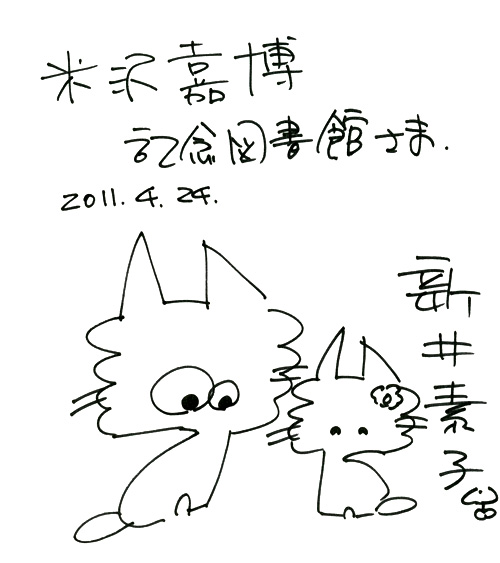 米沢嘉博
記念図書館さま.
2011.4.24.
新井素子